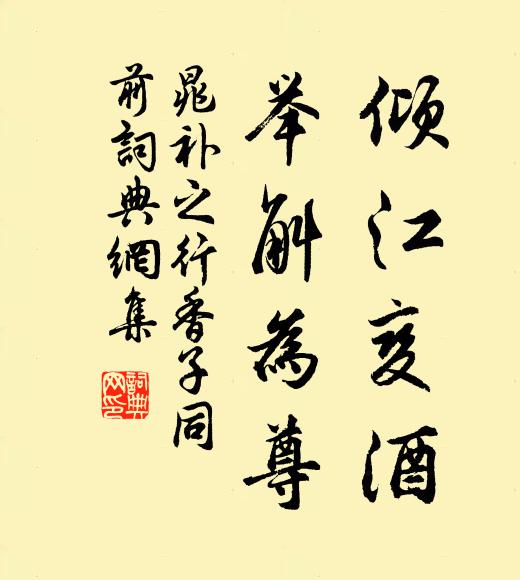 倾江变酒
举斛为尊
晁补之行香子同
前词典網集
詞典网印